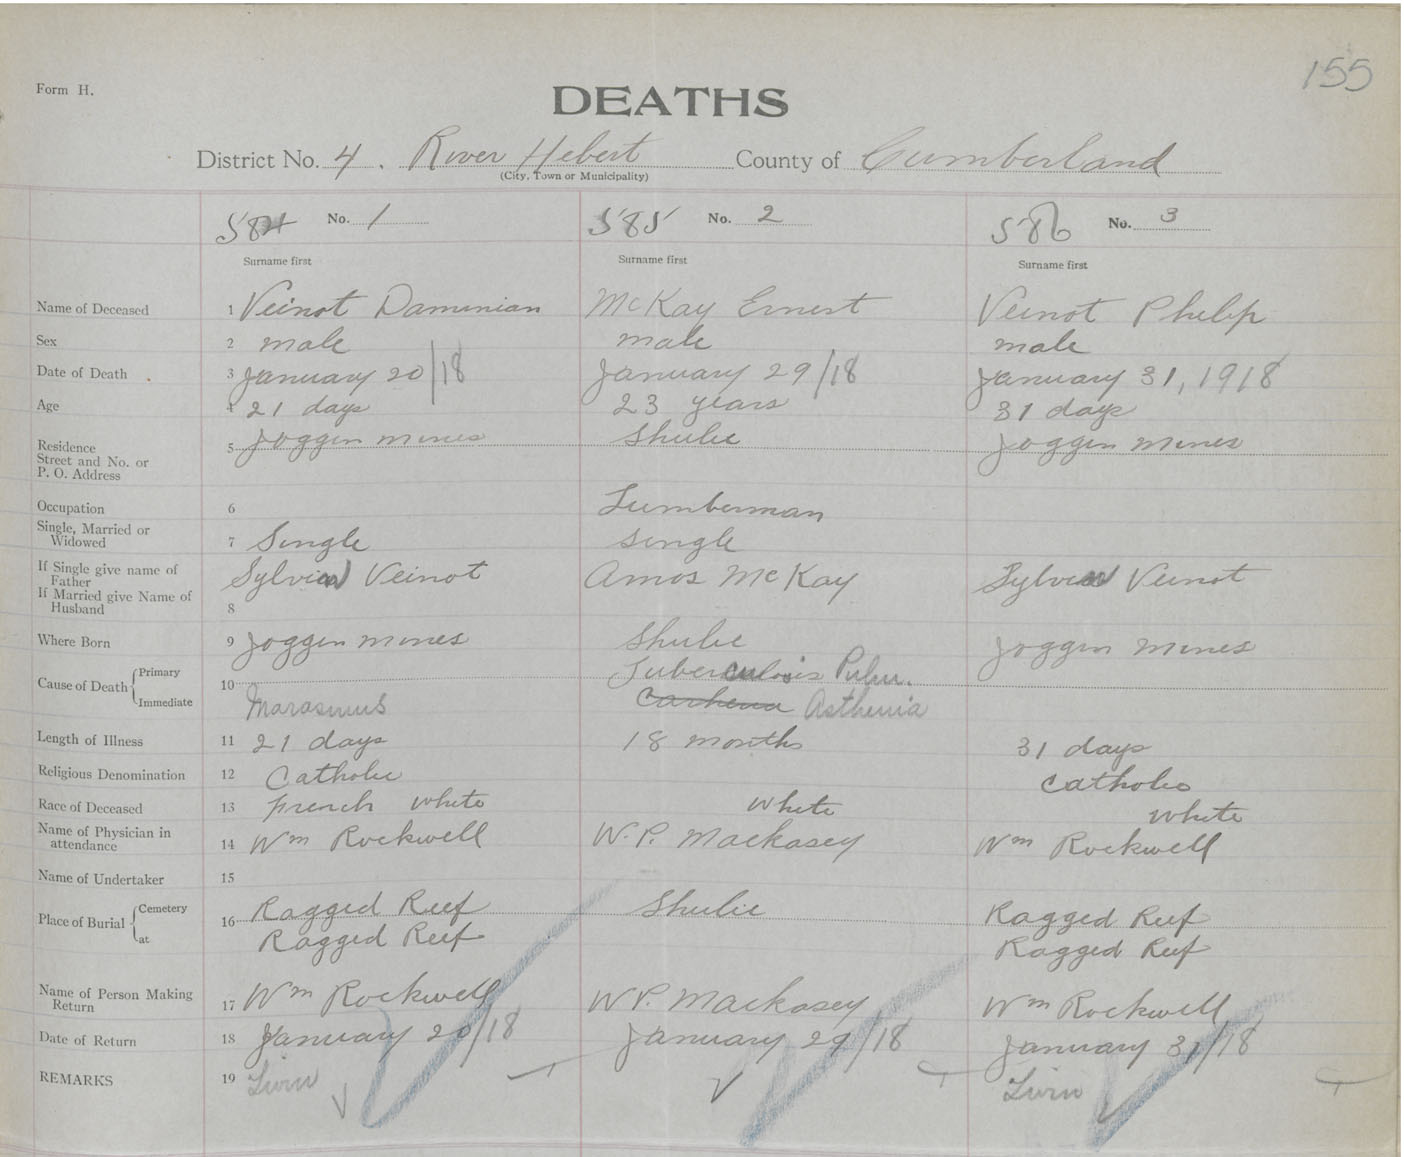 155
Form H.
DEATHS
District No. 4. River Hebert County of Cumberland
(City, Town or Municipality)
584 No. 1 585 No. 2 586 No. 3
Surname first Surname first Surname first
Name of Deceased 1 Veinot Daminian McKay Ernest Veinot Philip
Sex 2 male male male
Date of Death 3 January 20/18 January 29/18 January 31, 1918
Age 4 21 days 23 years 31 days
Residence
Street and No. or
P. O. Address 5 Joggin mines Shulie Joggin mines
Occupation 6 Lumberman
Single, Married or
Widowed 7 Single single
If Single give name of
Father Sylvian Veinot Amos McKay Sylvian Veinot
If Married give Name of
Husband 8
Where Born 9 Joggin mines Shulie Joggin mines
Cause of Death Primary 10 Tuberculosis Pulm.
Immediate Marasmus Asthenia
Length of Illness 11 21 days 18 months 31 days
Religious Denomination 12 Catholic Catholic
Race of Deceased 13 french white white white
Name of Physician in
attendance 14 Wm Rockwell W. P. Mackasey Wm Rockwell
Name of Undertaker 15
Place of Burial Cemetery 16 Ragged Reef Shulie Ragged Reef
at Ragged Reef Ragged Reef
Name of Person Making
Return 17 Wm Rockwell W P. Mackasey Wm Rockwell
Date of Return 18 January 20/18 January 29/18 January 31/18
REMARKS 19 Twin Twin